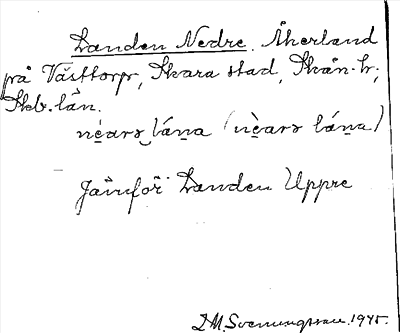 Landen Nedre. Åkerland
på Västtorp, Skara stad, Skån. h;
Skb. län.
nèarə lána (nèarə lána)
Jämför Landen Uppre
1945.